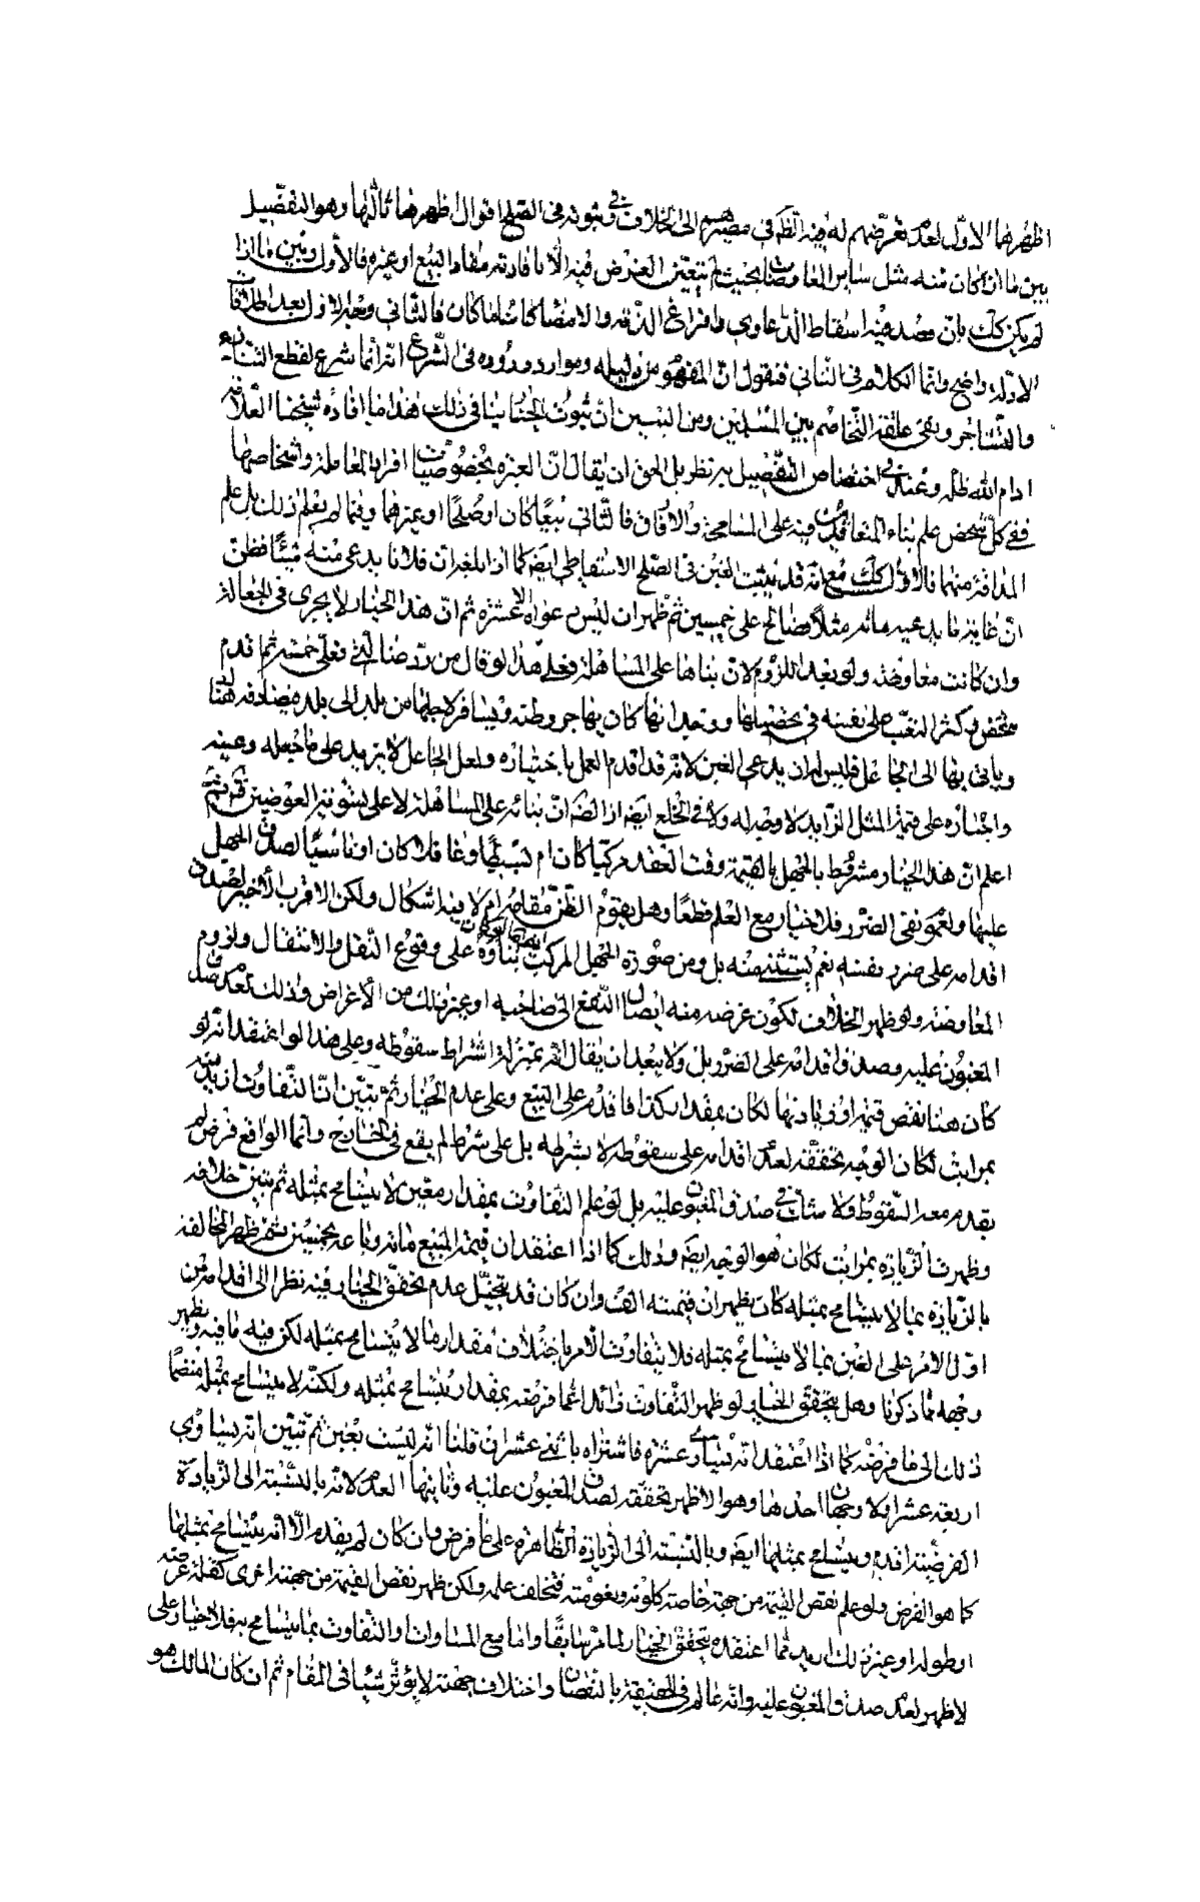 اظهرهما الاول لعدم تعرضهم له فيه الظاهر في مصيرهم الى الخلاف وفي ثبوته في الصلح اقوال اظهرها ثالثها وهو التفصيل
بين ما ان كان منه مثل ساير المعاوضات بحيث لم يتعين الغرض فيه الا بافادته مفاد البيع او غيره فالاول وبين ما اذا
لم يكن كك بان قصد فيه اسقاط الدعاوي وافراغ الذمة والامضاء كائنا ما كان فالثاني
الادلة واضح وانما الكلام في الثاني فنقول ان المفهوم من دليله وموارد وروده في الشرع انه انما شرع لقطع التنازع
والتشاجر وبقي علقة التخاصم بين المسلمين ومن البين ان ثبوت الخيار ينافي ذلك هذا ما افاده شيخنا العلامة
ادام الله ظله وعندي في اختصاص التفصيل به نظر بل الحق ان يقال ان العبرة بخصوصيات افراد المعاملة واشخاصها
ففي كل شخص علم بناء المتعاقدين فيه على المسامحة والارفاق فالثاني بيعا كان او صلحا او غيرهما وفيما لم يعلم ذلك بل علم
المداقة منهما فالاول كك مع انه قد يثبت الغبن في الصلح الاسقاطي ايضا كما اذا بلغه ان فلانا يدعي منه شيئا فظن
ان غاية ما يدعيه مائة مثلا فصالح على خمسين ثم ظهر ان ليس دعواه الا عشرة ثم ان هذا الخيار لا يجري في الجعالة
وان كانت معاوضة ولو بعد اللزوم لان بناها على المساهلة فعلى هذا لو قال من رد ضالتي فعلي خمسة ثم قدم
شخص وكثر التعب على نفسه في تحصيلها ووجدانها كان يهاجر وطنه ويسافر لاجلها من بلد الى بلد فيصادفه هنا
وياتي بها الى الجاعل فليس له ان يدعي الغبن لانه قد اقدم العمل باختياره ولعل الجاعل لا يزيد على ما جعله وعينه
واجباره على قيمة المثل الزايد لا وجه له ولا في الخلع ايضا اذ الظ ان بنائه على المساهلة لا على تسوية العوضين ثم
اعلم ان هذا الخيار مشروط بالجهل بالقيمة وقت العقد مركبا كان ام بسيطا وغافلا كان او ناسيا لصدق الجهل
عليها ولعموم نفي الضرر فلا خيار مع العلم قطعا وهل يقوم الظن مقامه ام لا فيه اشكال ولكن الاقرب الاخير لصدق
اقدامه على ضرر نفسه نعم يستثنى منه بل ومن صورة الجهل المركب بناؤه على وقوع النقل والانتقال ولزوم
المعاوضة ولو ظهر الخلاف لكون غرضه منه ايصال النفع الى صاحبه او غير ذلك من الاغراض وذلك لعدم صدق
المغبون عليه وصدق اقدامه على الضرر بل ولا يبعد ان يقال انه بمنزلة اشتراط سقوطه وعلى هذا لو اعتقد انه لو
كان هنا نقص قيمة او زيادتها لكان بمقدار كذا فاقدم على البيع وعلى عدم الخيار ثم تبين ان التفاوت ازيد منه
بمراتب لكان الوجه تحققه لعدم اقدامه على سقوطه لا بشرطه بل على شرط لم يقع في الخارج وانما الواقع فرض لم
يقدم معه السقوط ولا شك في صدق المغبون عليه بل لو علم التفاوت بمقدار معين لا يتسامح بمثله ثم تبين خلافه
وظهرت الزيادة بمراتب لكان هو الوجه ايضا وذلك كما اذا اعتقد ان قيمة المبيع مائة وباعه بخمسين ثم ظهر المخالفة
بالزيادة بما لا يتسامح بمثله كان يظهر ان قيمته الف وان كان قد يتخيل عدم تحقق الخيار فيه نظرا الى اقدامه من
اول الامر على الغبن بما لا يتسامح بمثله فلا يتفاوت الامر باختلاف مقدار ما لا يتسامح بمثله لكن فيه ما فيه ويظهر
وجهه مما ذكرنا وهل يتحقق الخيار لو ظهر التفاوت زائدا عما فرضه بمقدار يتسامح بمثله ولكنه لا يتسامح بمثله منضما
ذلك الى ما فرضه كما اذا اعتقد انه يساوي عشرة فاشتراه باثني عشر فان قلنا انه ليست بغبن ثم تبين انه يساوي
اربعة عشر او لا وجهان احدهما وهو الاظهر تحققه لصدق المغبون عليه وثانيهما العدم لانه بالنسبة الى الزيادة
الفرضية اقدم ويتسامح بمثلها ايضا وبالنسبة الى الزيادة الظاهرة على ما فرض وان كان لم يقدم الا انه يتسامح بمثلها
كما هو الفرض ولو علم نقص القيمة من جهة خاصة كلونه ونعومته فتخلف علمه ولكن ظهر نقص القيمة من جهة اخرى كقلة عرضه
او طوله او غير ذلك ازيد مما اعتقده يتحقق الخيار لما مر سابقا واما مع المساواة او التفاوت بما يتسامح به فلا خيار على
الاظهر لعدم صدق المغبون عليه وانه عالم في الحقيقة بالنقصان واختلاف جهته لا يؤثر شيئا في المقام ثم ان كان المالك هو